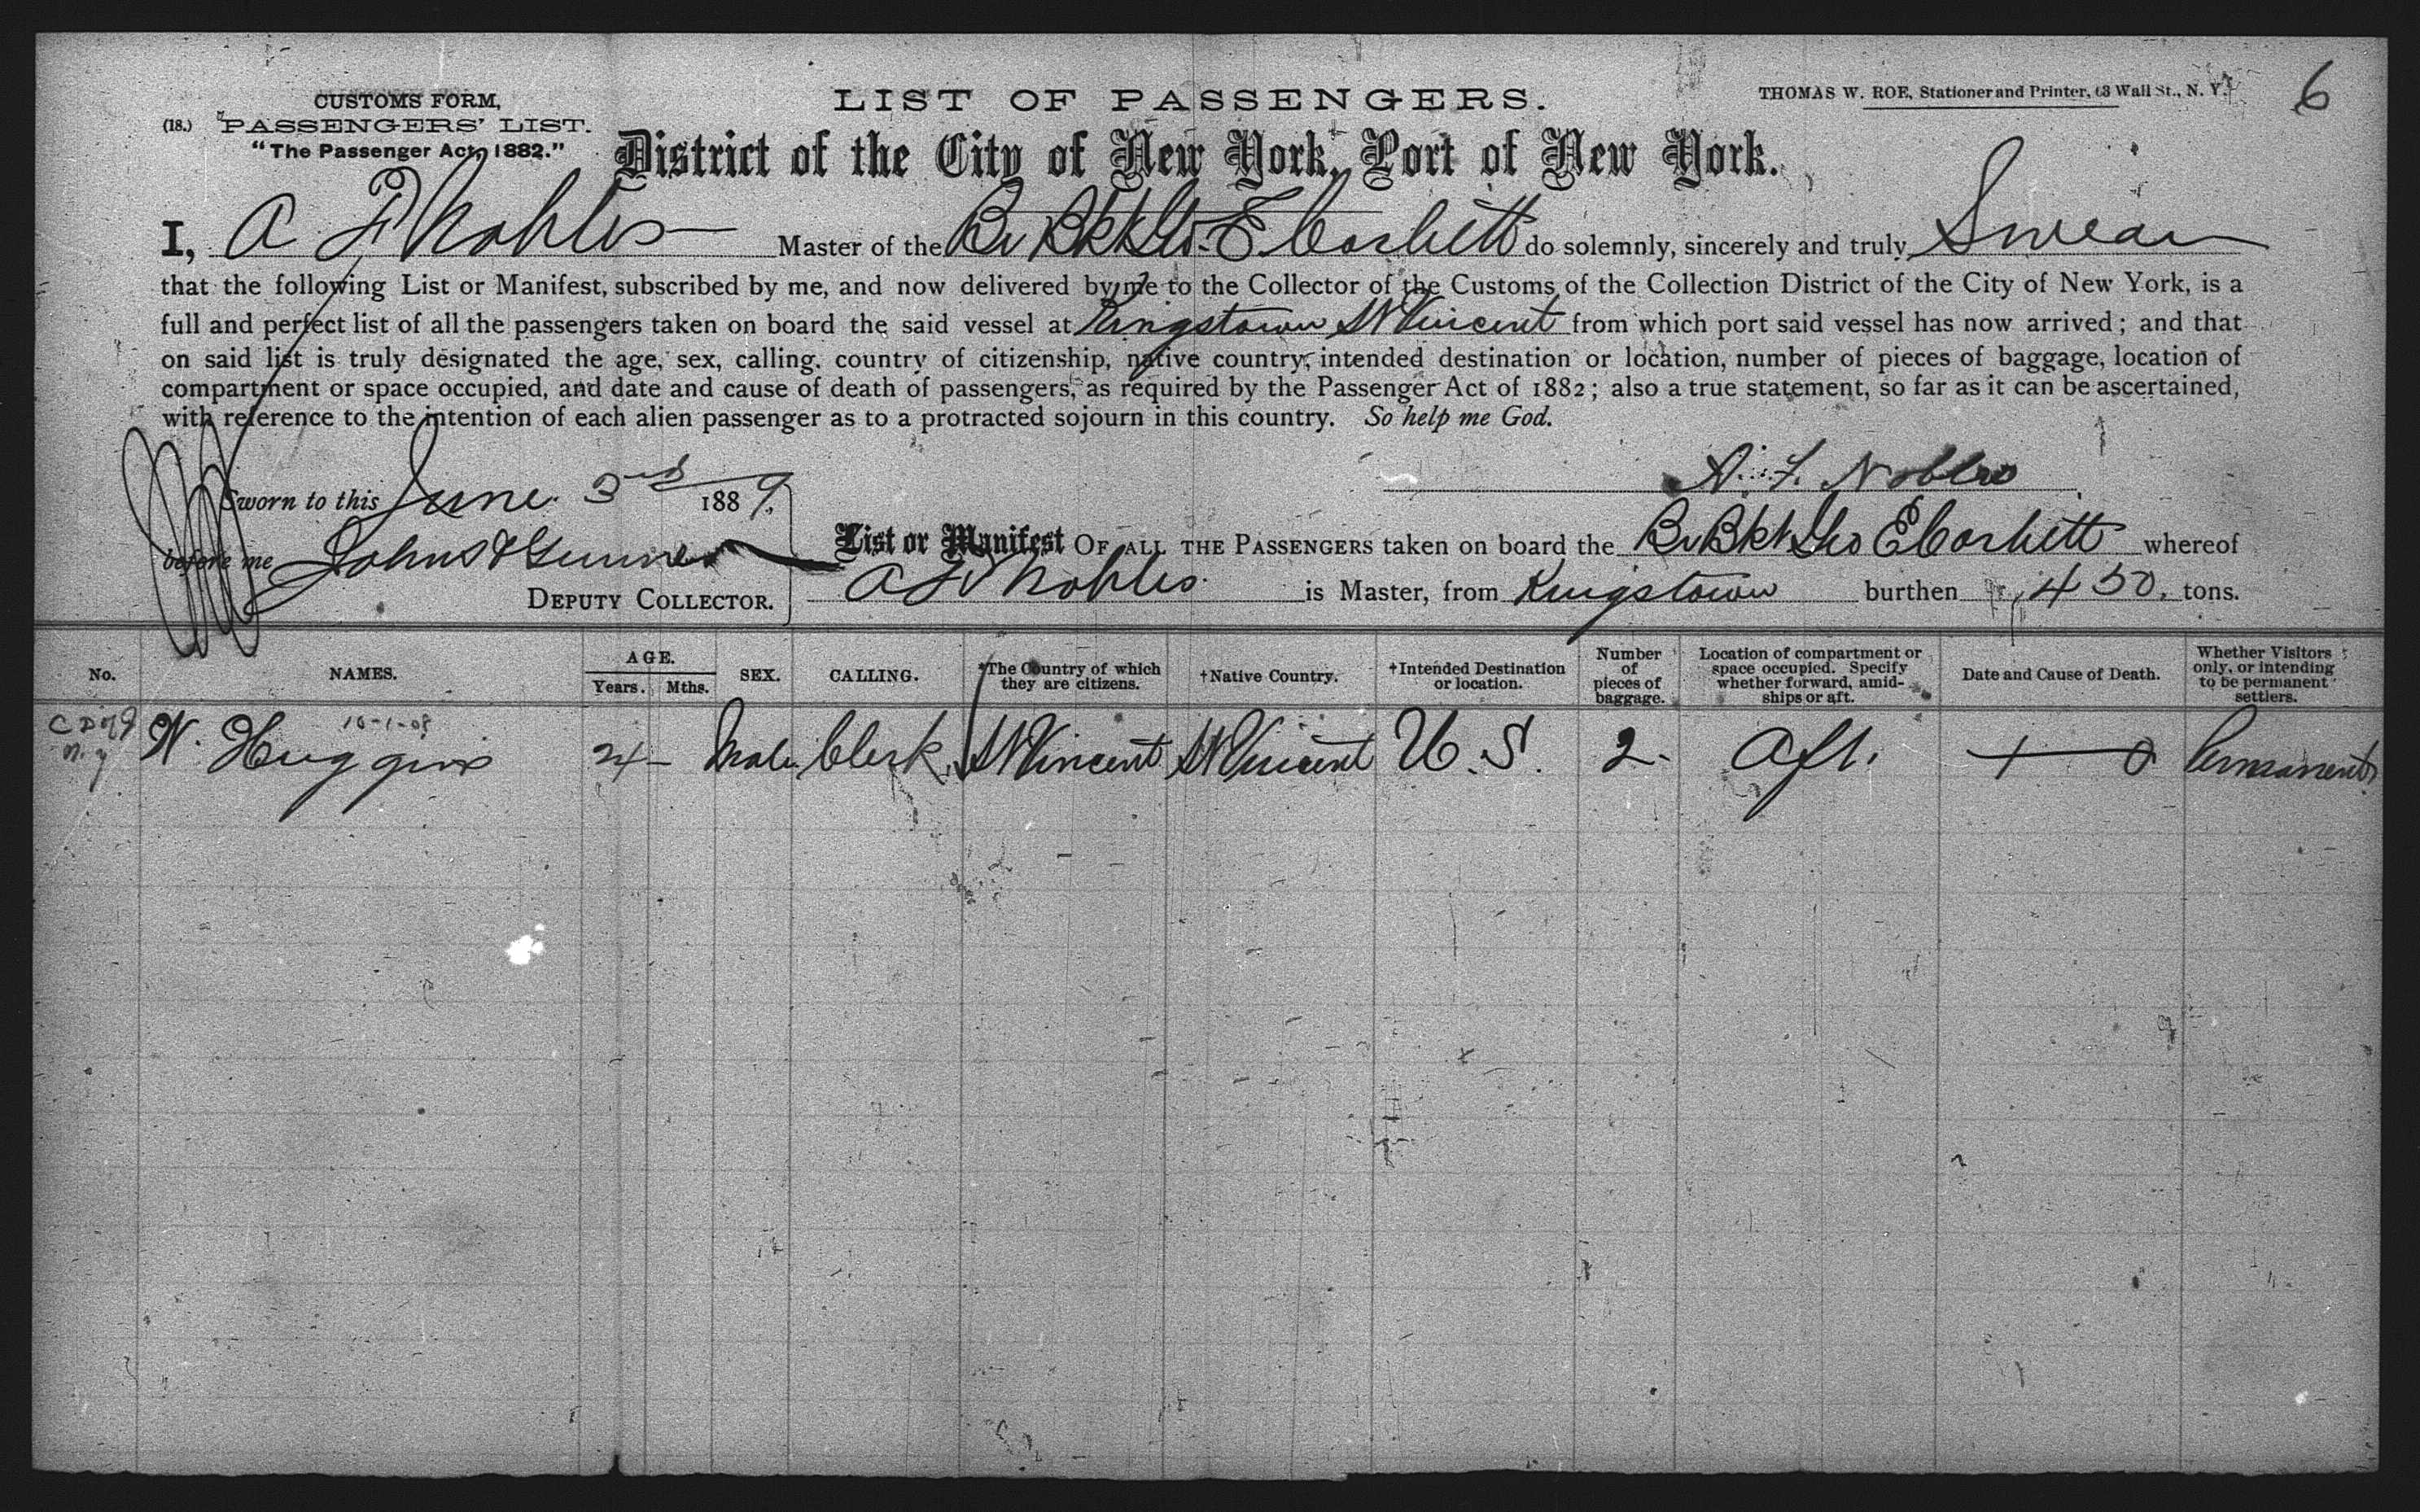 CUSTOMS FORM,
(18.) PASSENGERS' LIST.
"The Passenger Act, 1882."
LIST OF PASSENGERS.
THOMAS W. ROE, Stationer and Printer, 63 Wall St., N. Y.
6
District of the City of New York, Port of New York.
I, A F Nobles Master of the Br Bkt Geo. E Corbitt do solemnly, sincerely and truly Swear
that the following List or Manifest, subscribed by me, and now delivered by me to the Collector of the Customs of the Collection District of the City of New York, is a
full and perfect list of all the passengers taken on board the said vessel at Kingstown St Vincent from which port said vessel has now arrived; and that
on said list is truly designated the age, sex, calling, country of citizenship, native country, intended destination or location, number of pieces of baggage, location of
compartment or space occupied, and date and cause of death of passengers, as required by the Passenger Act of 1882; also a true statement, so far as it can be ascertained,
with reference to the intention of each alien passenger as to a protracted sojourn in this country. So help me God.
A. F. Nobles
Sworn to this June 3rd 1889,
before me
DEPUTY COLLECTOR.
List or Manifest OF ALL THE PASSENGERS taken on board the Br Bkt Geo E Corbitt whereof
A F Nobles is Master, from Kingstown burthen 450. tons.
No. NAMES. AGE. Years. Mths. SEX. CALLING. *The Country of which they are citizens. †Native Country. †Intended Destination or location. Number of pieces of baggage. Location of compartment or space occupied. Specify whether forward, amidships or aft. Date and Cause of Death. Whether Visitors only, or intending to be permanent settlers.
10-1-08
W. Huggins 24 Male Clerk St Vincent St Vincent U.S. 2. Aft. Permanent
N.Y